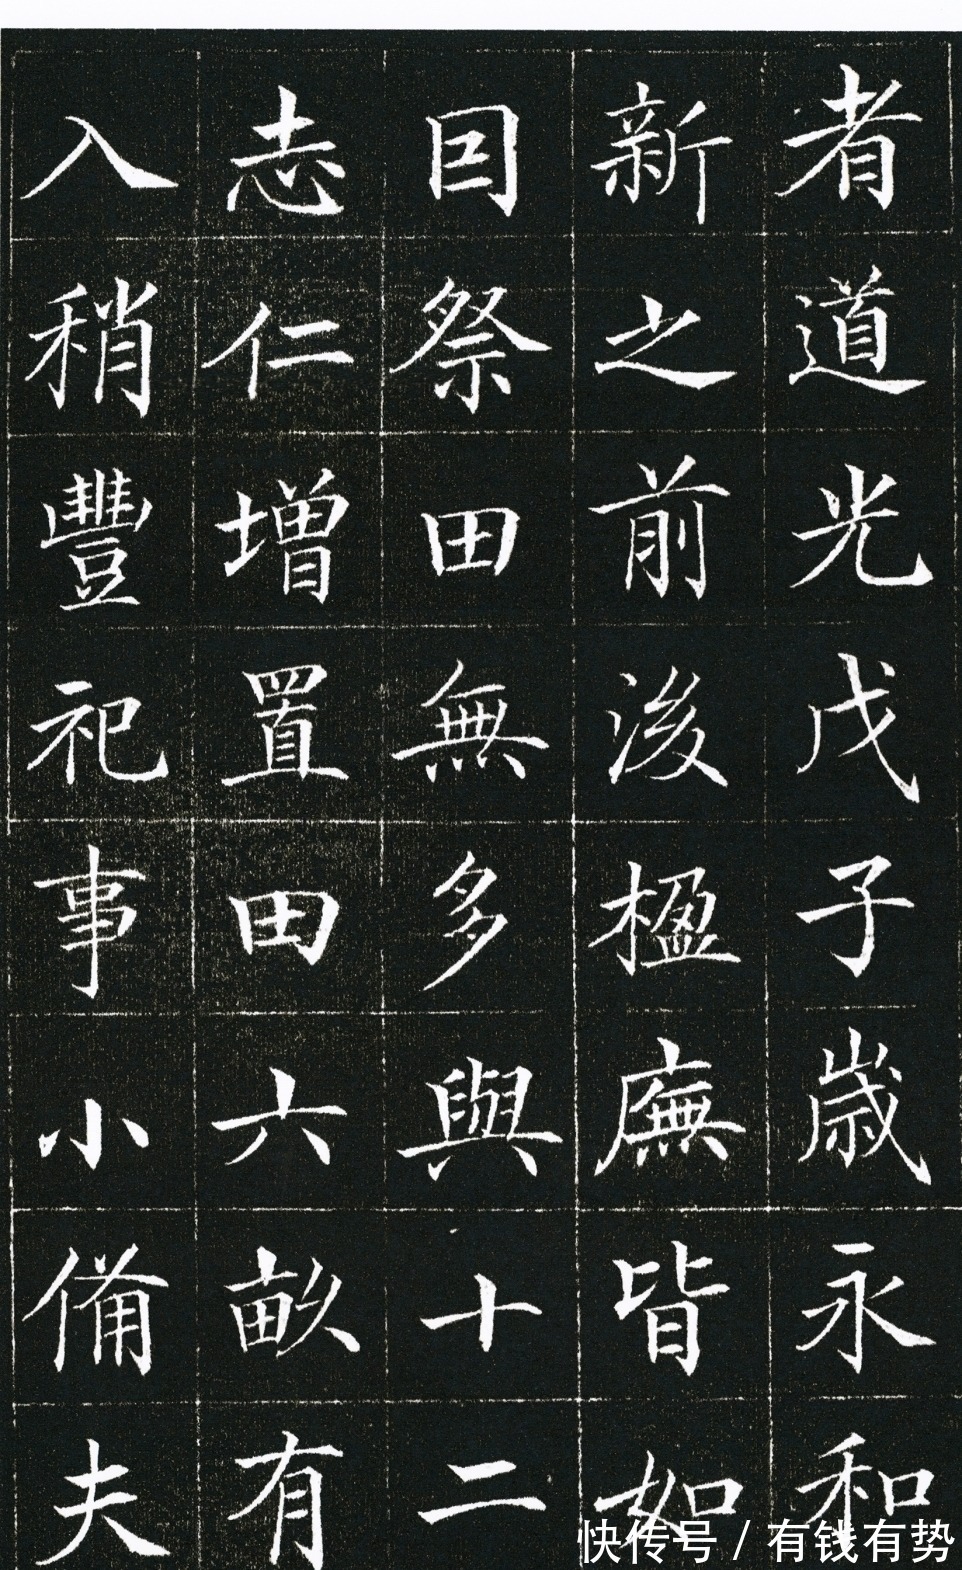 者道光戊子歲永和
新之前後楹廡皆如
囙祭田無多與十二
志仁增置田六畝有
入稍豐祀事小備夫
快传号 / 有钱有势